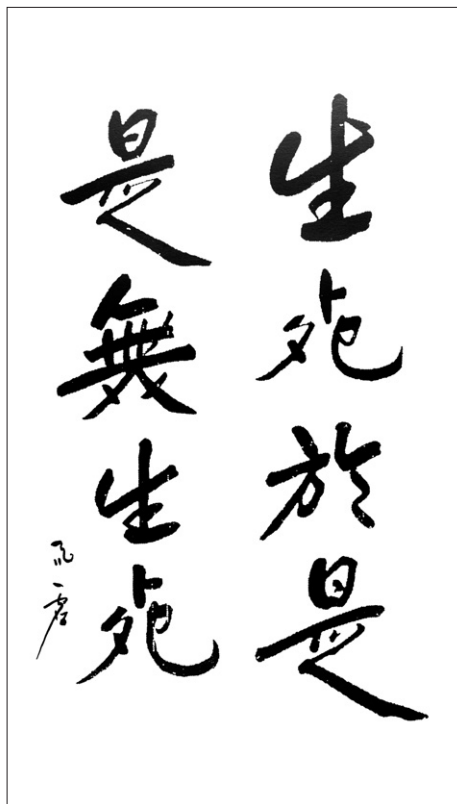 生死於是
是無生死